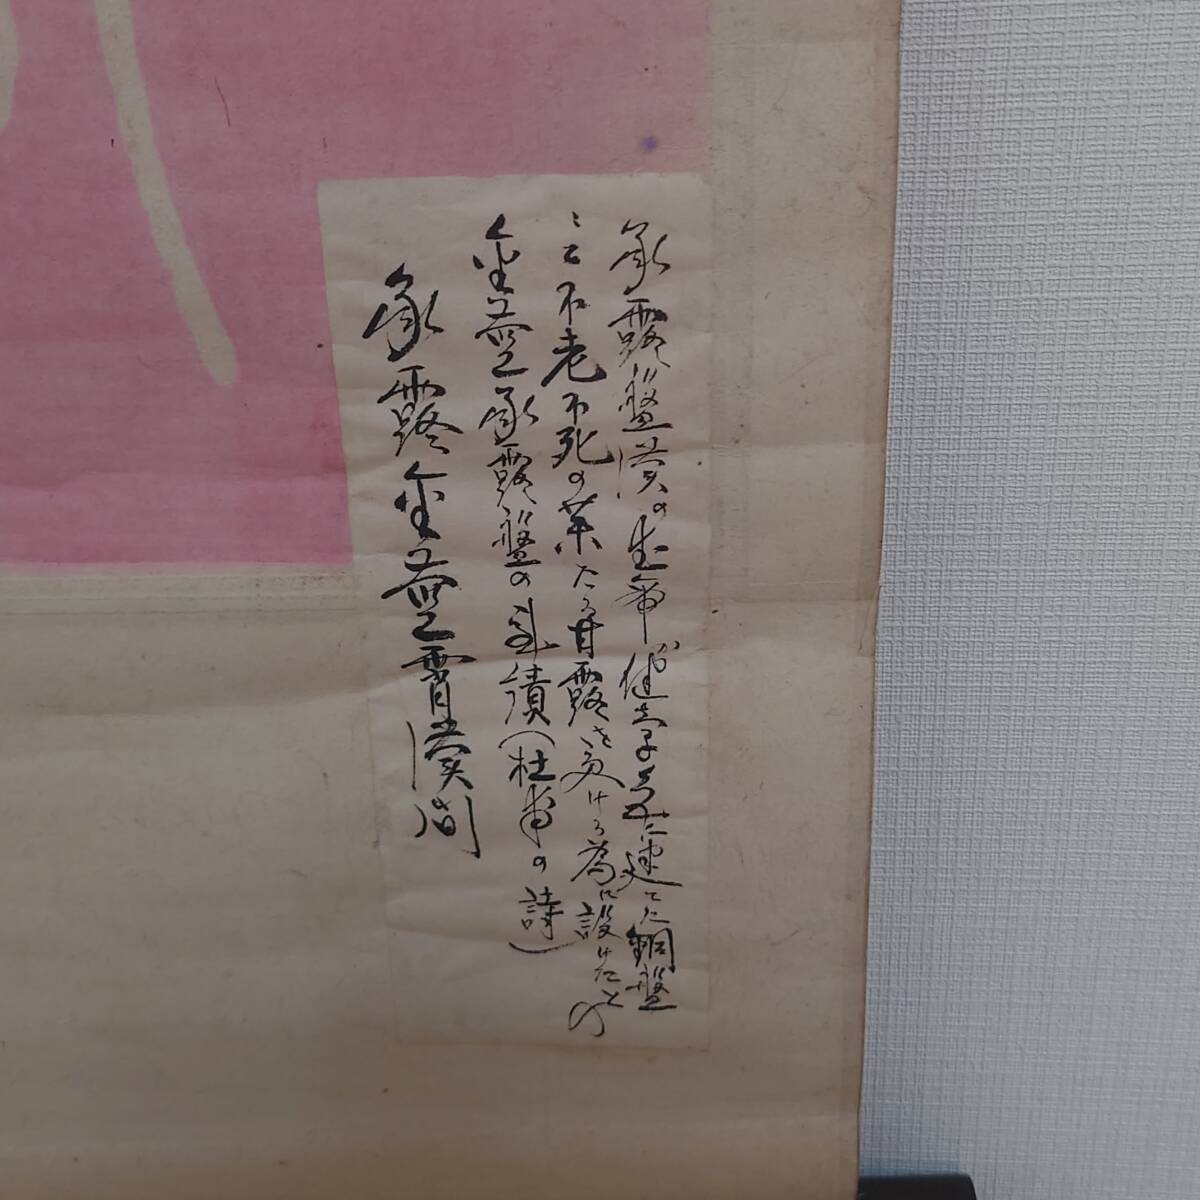 承露盤漢の武帝が建章宮に建てた銅盤
不老不死の薬たる甘露を受ける為に設けたもの
金莖承露盤の（杜甫の詩）
承露金莖霄漢間